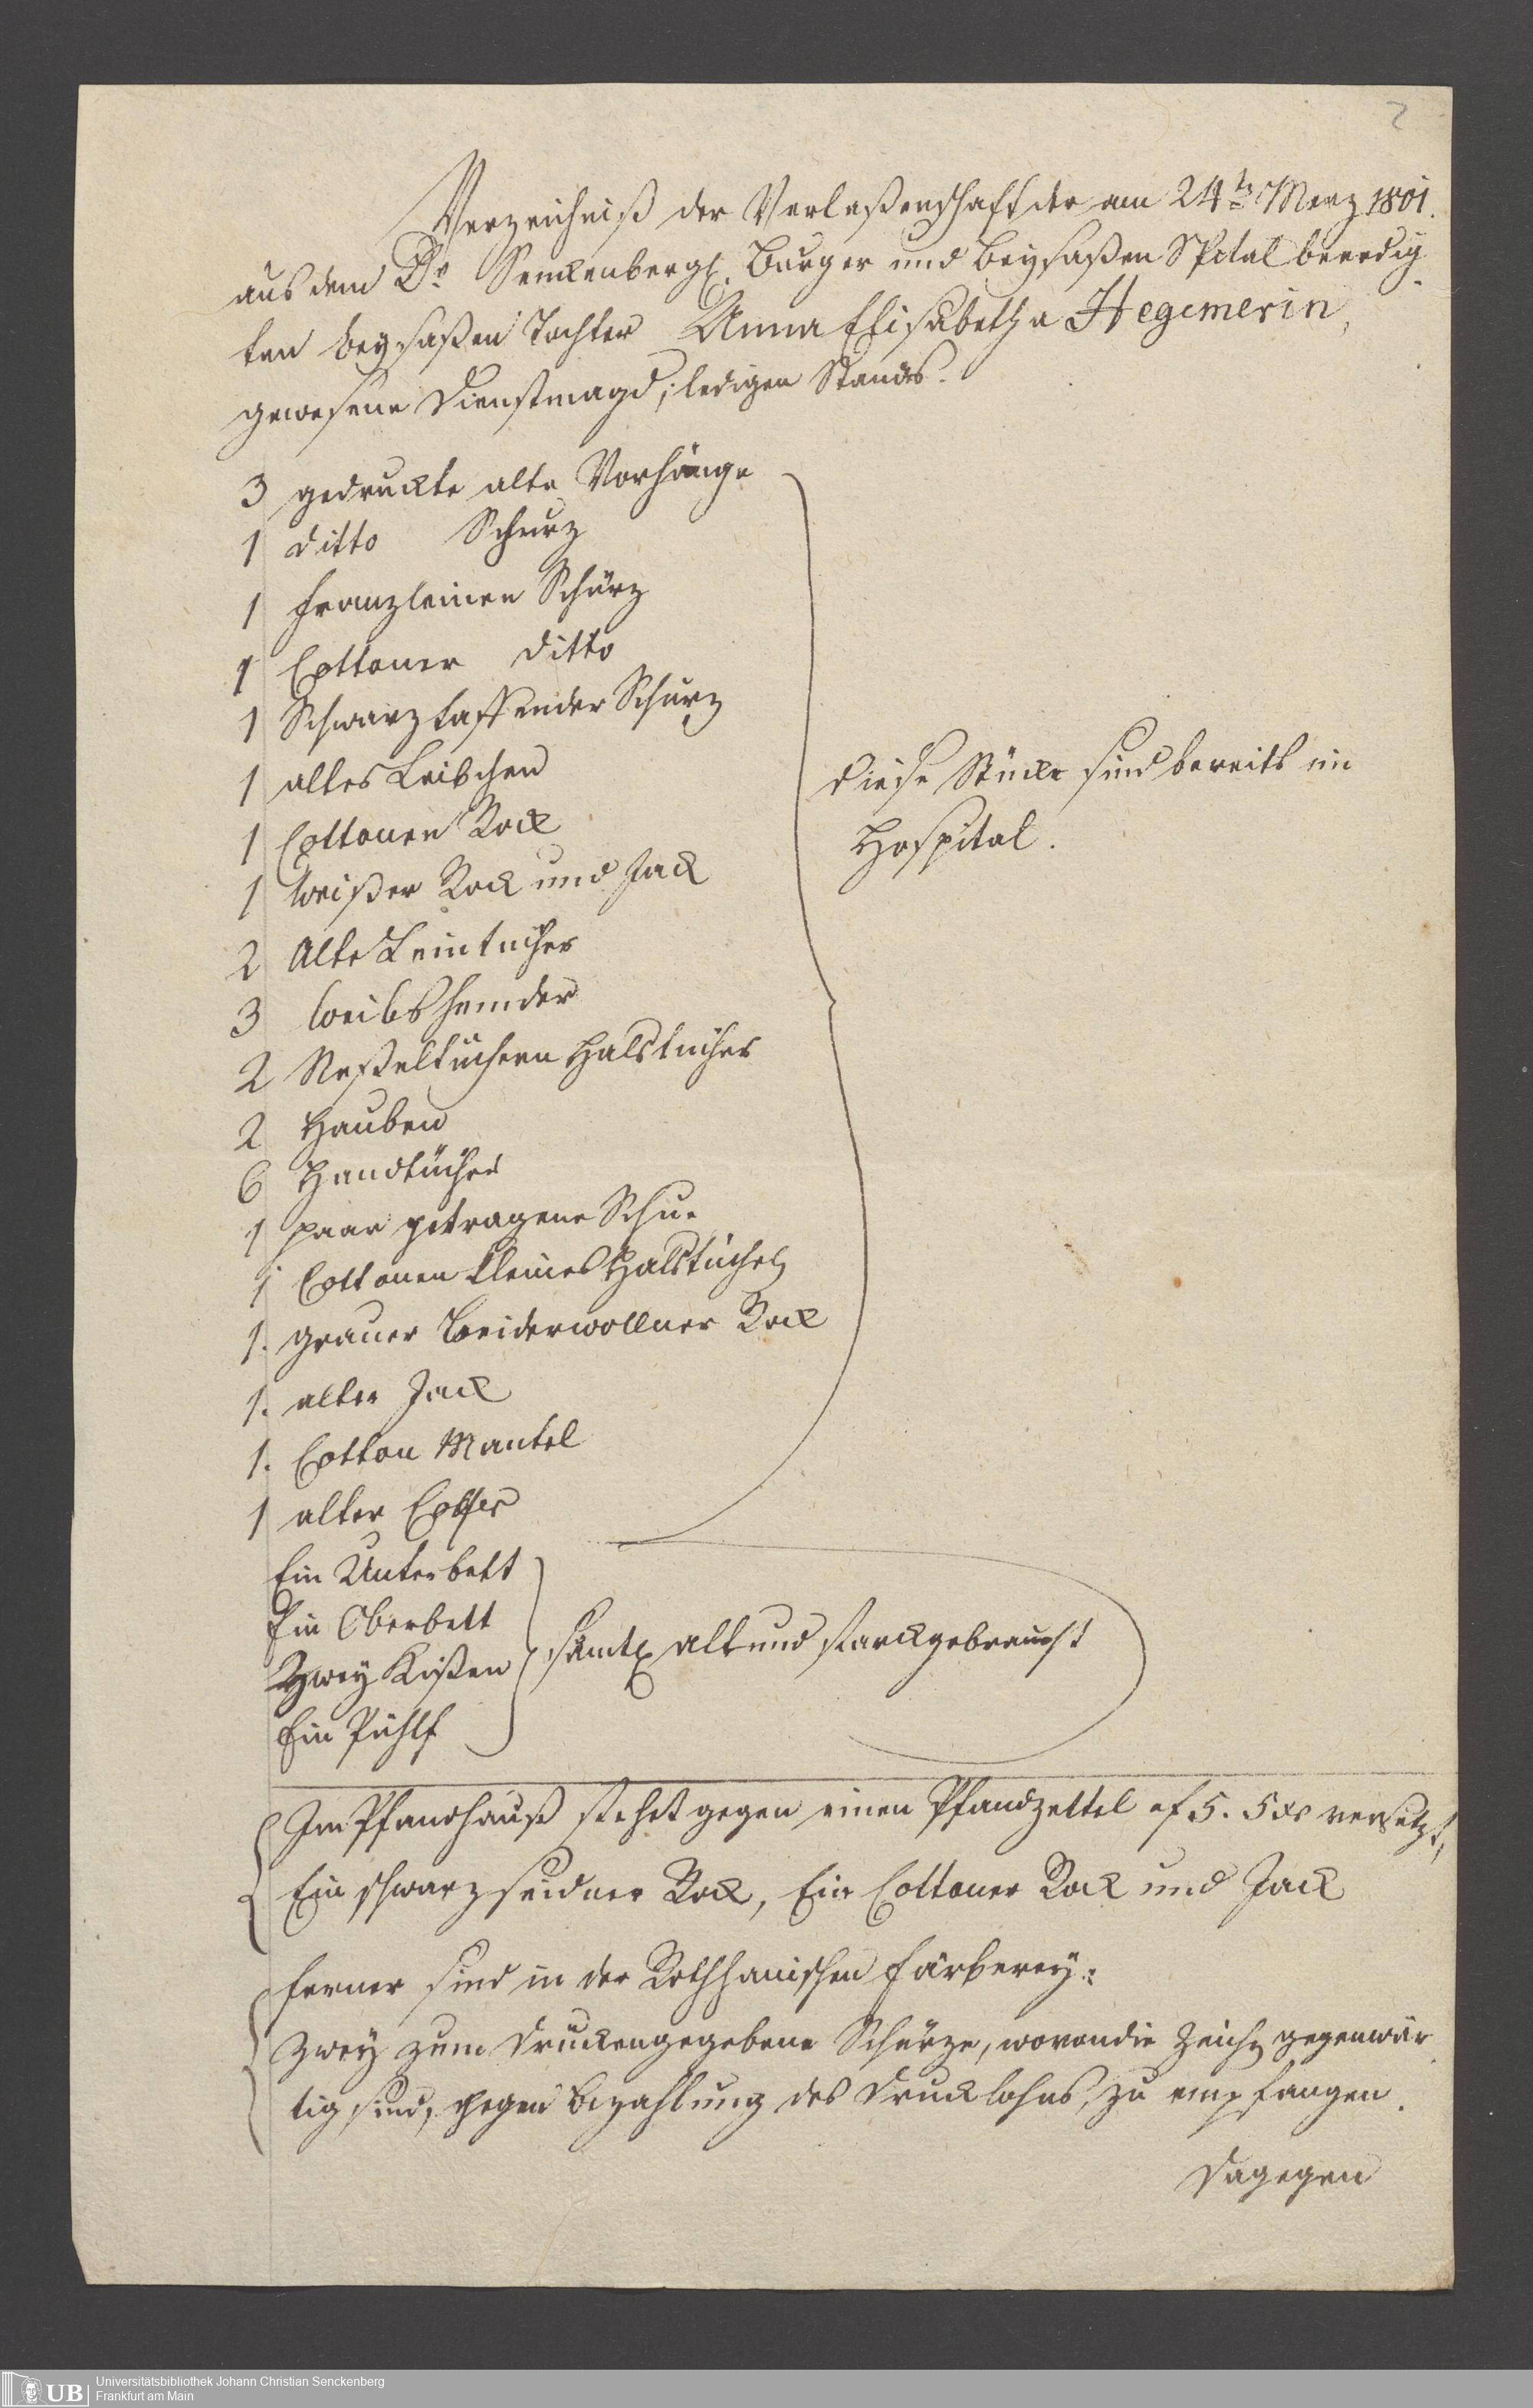 2
Verzeichniß der Verlaßenschaft der am 24ten Merz 1801.
aus dem Dr. Senckenbergl. Burger und Beysaßen Spital beerdig-
ten Beysaßen Tochter Anna Elisabetha Hegemerin,
gewesene Dienstmagd, ledigen Stands.
3 gedruckte alte Vorhänge
1 ditto Schurz
1 franzleinen Schürz
1 Cottoner ditto
1 Schwarz taffender Schurz
1 altes Leibchen
1 Cottonen Rock
1 weißer Rock und Jack
2 Alte Leintücher
3 Weibshemder
2 Neßeltüchern Halstücher
2 Hauben
6 Handtücher
1 paar getragene Schue
1 Cottonen kleines Halstüchel
1. grauer Beiderwollner Rock
1. alter Jack
1. Cotton Mantel
1 alter Coffer
Diese Stücke sind bereits im
Hospital.
Ein Unterbett
Ein Oberbett
Zwey Kißen
Ein Pühlf
sämtl. alt und starck gebraucht
Im Pfandhauß stehet gegen einen Pfandzettel af 5. 5 xr versetzt,
Ein schwarz seidner Rock, Ein Cottoner Rock und Jack
ferner sind in der Rothhanischen Färberey:
Zwey zum Drucken gegebene Schürze, wovon die Zeichen gegenwär-
tig sind, gegen Bezahlung des Drucklohns, zu empfangen.
Dagegen
UB Universitätsbibliothek Johann Christian Senckenberg
Frankfurt am Main